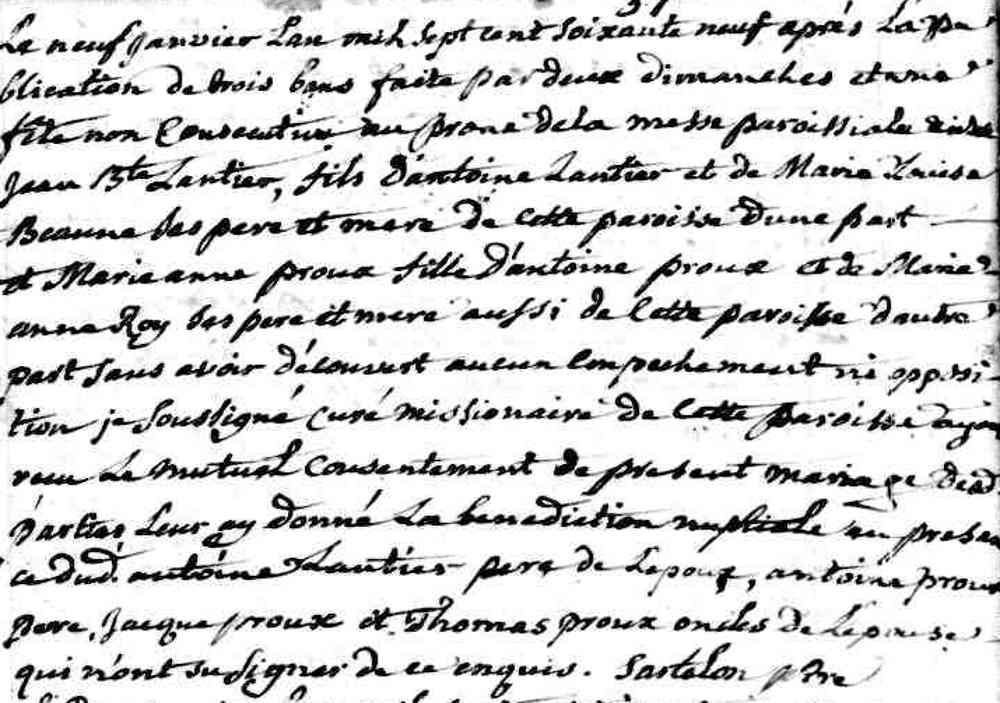 Le neuf janvier Lan mil sept cent soixante neuf après La pu
blication de trois bans faite par deux dimanches et une
fête non Consecutive au prone dela messe paroissiale entre
Jean Bte Lantier, fils d'antoine Lantier et de Marie Louise
Beaune ses pere et mere de cette paroisse dune part
et Marie anne proux fille d'antoine proux et de Marie
anne Roy ses pere et mere aussi de Cette paroisse dautre
part sans avoir découvert aucun Empechement ni opposi
tion je soussigné curé missionaire de Cette paroisse ayant
recu Le mutuel Consentement de present mariage desd.
parties Leur ay donné La benediction nuptiale en presen
ce dud. antoine Lantier pere de Lepoux, antoine proux
pere, Jacque proux et Thomas proux oncles de Lepouse
qui n'ont su signer de ce enquis. Sartelon ptre